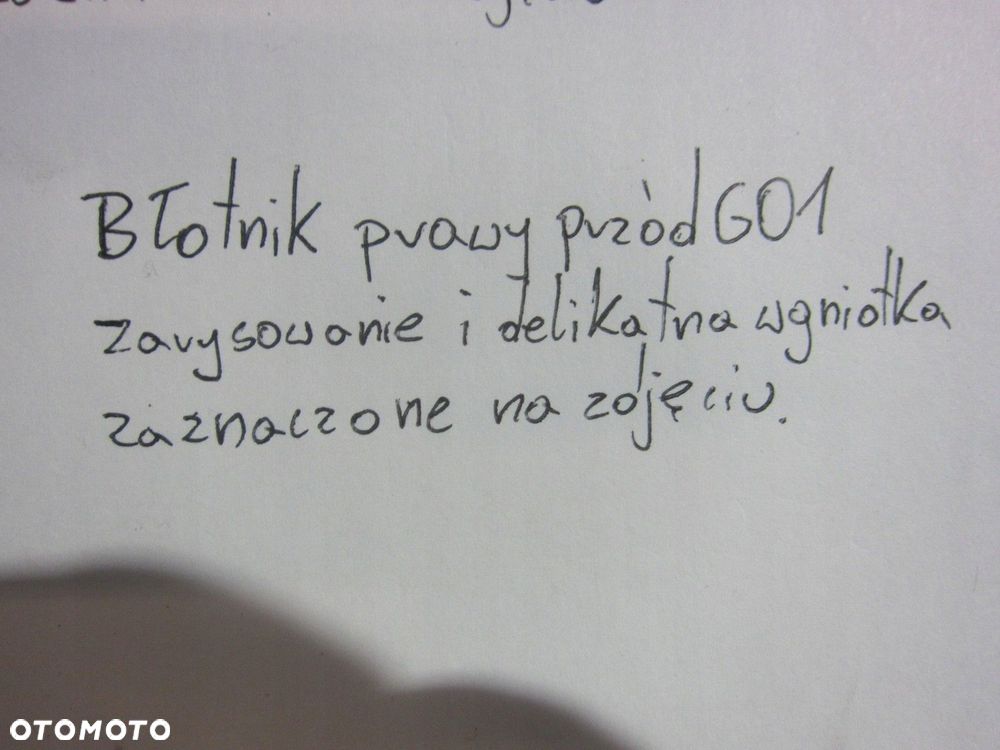 Błotnik prawy przód G01
zarysowanie i delikatna wgniotka
zaznaczone na zdjęciu.
OTOMOTO